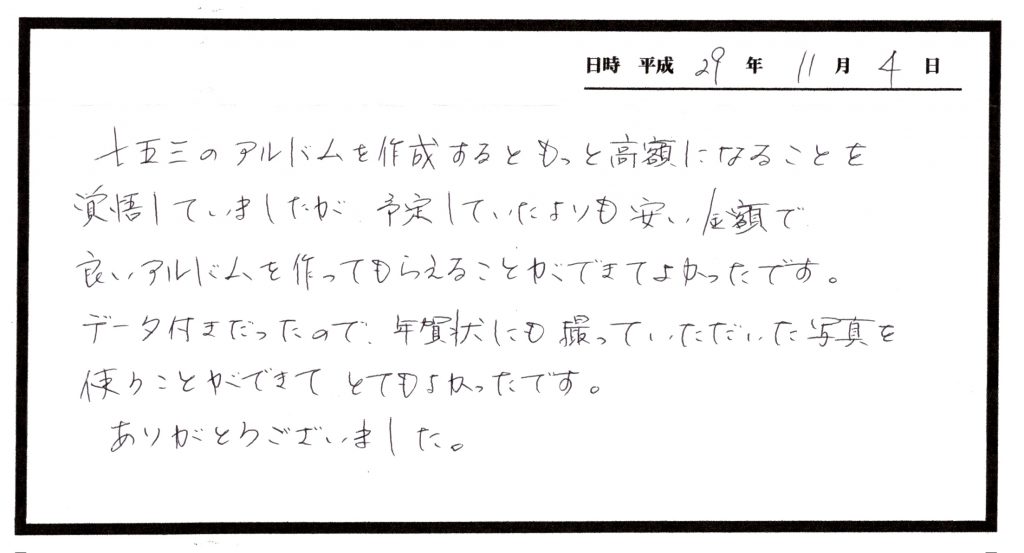 日時 平成 29 年 11 月 4 日
七五三のアルバムを作成するともっと高額になることを
覚悟していましたが、予定していたよりも安い金額で
良いアルバムを作ってもらえることができてよかったです。
データ付きだったので、年賀状にも撮っていただいた写真を
使うことができてとてもよかったです。
ありがとうございました。